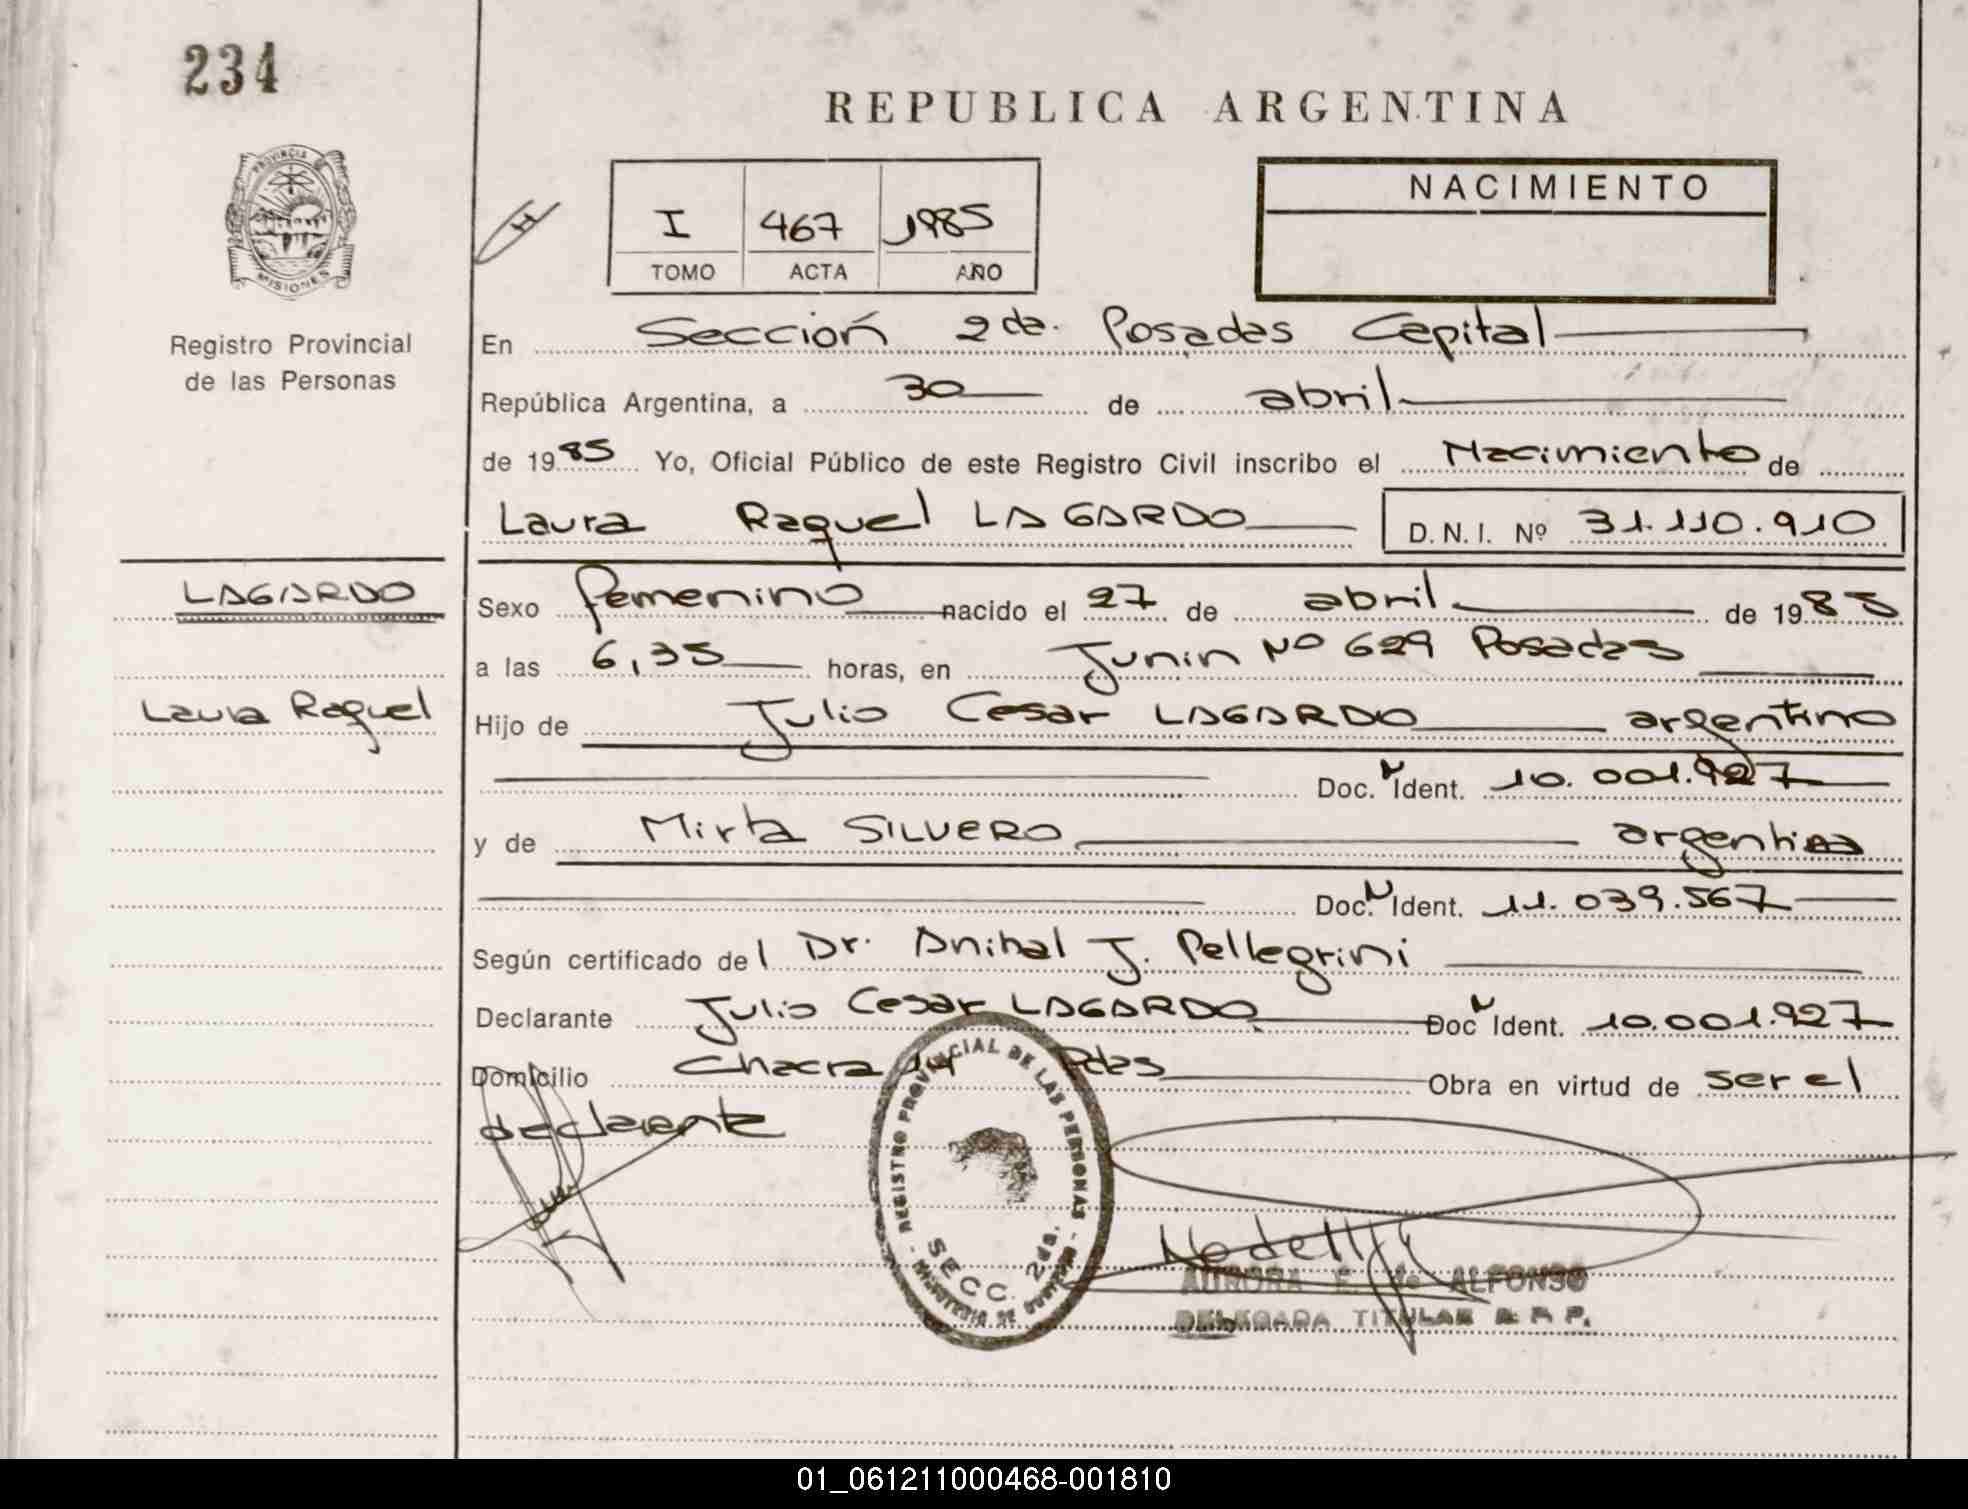 234
REPUBLICA ARGENTINA
PROVINCIA
MISIONES
Registro Provincial
de las Personas
I 467 1985
TOMO ACTA AÑO
NACIMIENTO
En Sección 2da. Posadas Capital
República Argentina, a 30 de abril
de 1985 Yo, Oficial Público de este Registro Civil inscribo el Nacimiento de
Laura Raquel LAGARDO D.N.I. Nº 31.110.910
LAGARDO
Laura Raquel
Sexo femenino nacido el 27 de abril de 1985
a las 6,35 horas, en Junin Nº 629 Posadas
Hijo de Julio Cesar LAGARDO argentino
Doc. N Ident. 10.001.927
y de Mirta SILVERO argentina
Doc. N Ident. 11.039.567
Según certificado del Dr. Anibal J. Pellegrini
Declarante Julio Cesar LAGARDO Doc N Ident. 10.001.927
Domicilio Chacra 14 Pdas Obra en virtud de ser el
declarante
REGISTRO PROVINCIAL DE LAS PERSONAS
SECC. 2da.
MINISTERIO DE GOBIERNO
AURORA E. de ALFONSO
DELEGADA TITULAR R. P. P.
01_061211000468-001810